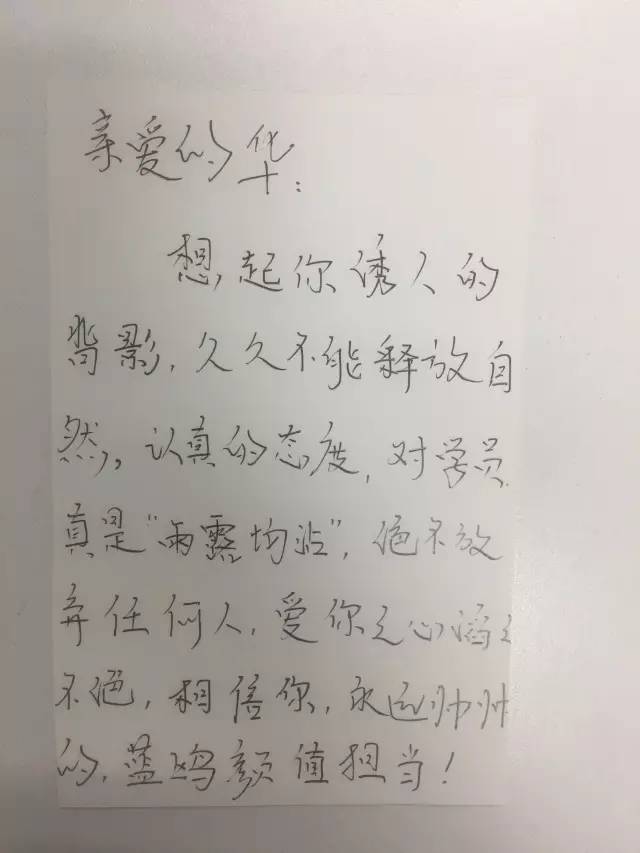 亲爱的华:
想起你诱人的
背影,久久不能释放自
然。认真的态度,对学员
真是“雨露均沾”,绝不放
弃任何人,爱你之心滔之
不绝,相信你,永远帅帅
的,蓝鸥颜值担当!